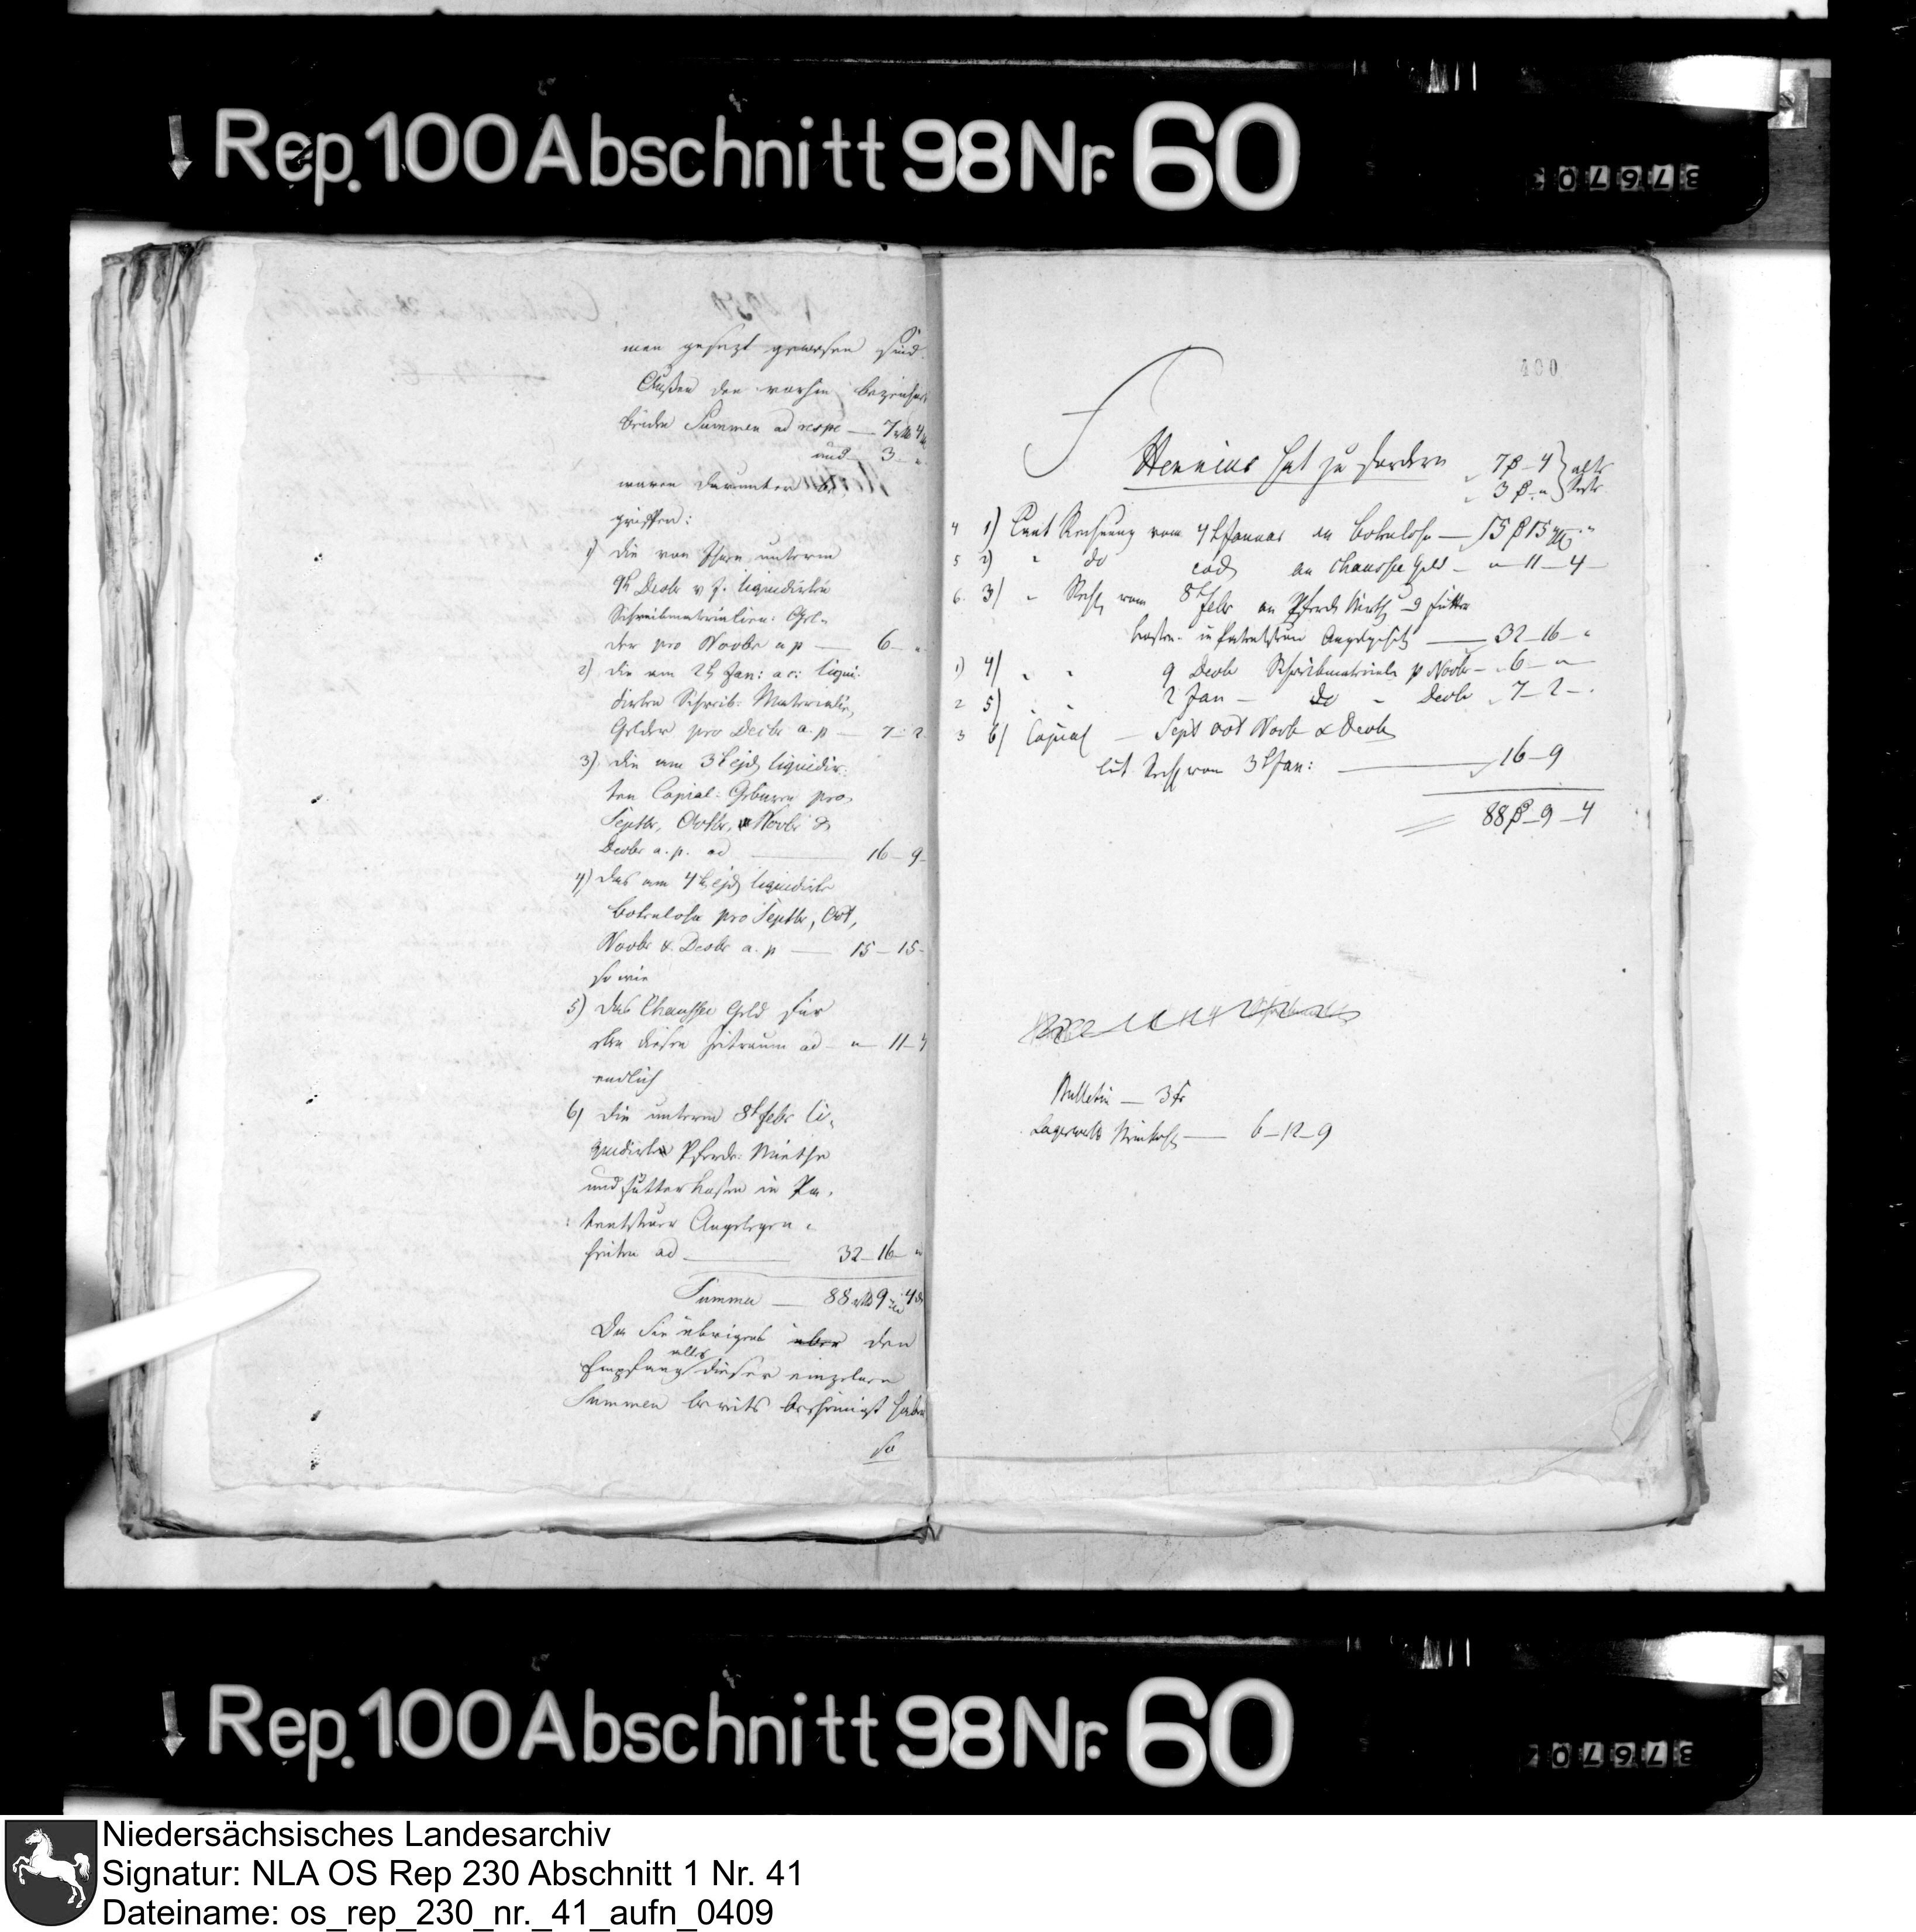 Rep. 100 Abschnitt 98 Nr. 60
37670
men gesezt gewesen sind.
Außer den vorhin bezeichn
beiden Summen ad resp — 7 rth 4
und 3 — "
waren darunter be
griffen:
1) die von Ihnen unterm
9t Decbr v. J. liquidirten
Schreibmaterialien: Gel-
der pro Novbr a p — 6 — "
2) die am 2t Jan: a c: liqui-
dirten Schreib: Materialien
Gelder pro Decbr a. p — 7 - 2
3) die am 3t ejd liquidir-
ten Copial: Gebüren pro
Septbr, Octbr, Novbr &
Decbr a. p. ad — 16 — 9 —
4) das am 4t ejd liquidirte
Botenlohn pro Septbr, Oct,
Novbr & Decbr a. p — 15 — 15 —
so wie
5) das Chaussee Geld für
eben diesen Zeitraum ad — " — 11 — 4
endlich
6) die unterm 8t Febr li-
quidirten Pferde: Miethe
und Futterkosten in Pa-
tentsteuer Angelegen-
heiten ad — 32 — 16 — "
Summa — 88 rth 9 4
Da Sie übrigens aber den
alle
Empfang dieser einzelnen
Summen bereits bescheinigt haben
so
400
Hennius hat zu fordern 7 — 4
3 — "
4 1) Laut Rechnung vom 4t Januar an Botenlohn — 15 15 "
5 2) " do eod an Chaussee Geld — " — 11 — 4 —
6 3) " Rech vom 8t Febr an Pferde Mieth u Futter
kosten in Patentsteuer Angelegenh — 32 — 16 — "
1) 4) " " 9 Decb Schreibmaterial p Novb — 6 — " —
2 5) " " 2 Jan — do " Decb 7 — 2 —
3 6) Copial — Sept Oct Novb & Decb
lut Rech von 3t Jan: — 16 — 9
88 — 9 — 4
Bulletin — 3 fr
6 — 12 — 9
Rep. 100 Abschnitt 98 Nr. 60
37670
Niedersächsisches Landesarchiv
Signatur: NLA OS Rep 230 Abschnitt 1 Nr. 41
Dateiname: os_rep_230_nr._41_aufn_0409